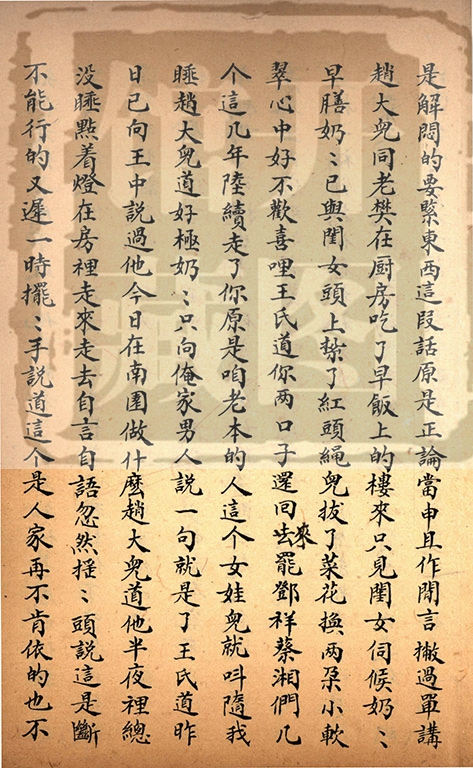 是解悶的要緊東西這段話原是正論當申且作閒言撇過單講
趙大兒同老樊在厨房吃了早飯上的樓來只見閨女伺候奶〻
早膳奶〻已與閨女頭上紮了紅頭繩兒拔了菜花换两朶小軟
翠心中好不歡喜哩王氏道你两口子還回來去罷鄧祥蔡湘們几
个這几年陸續走了你原是咱老本的人這个女娃兒就呌隨我
睡趙大兒道好極奶〻只向俺家男人説一句就是了王氏道昨
日已向王中説過他今日在南園做什麽趙大兒道他半夜裡總
没睡㸃着燈在房裡走來走去自言自語忽然摇〻頭説這是斷
不能行的又遲一時擺〻手説道這个是人家再不肯依的也不